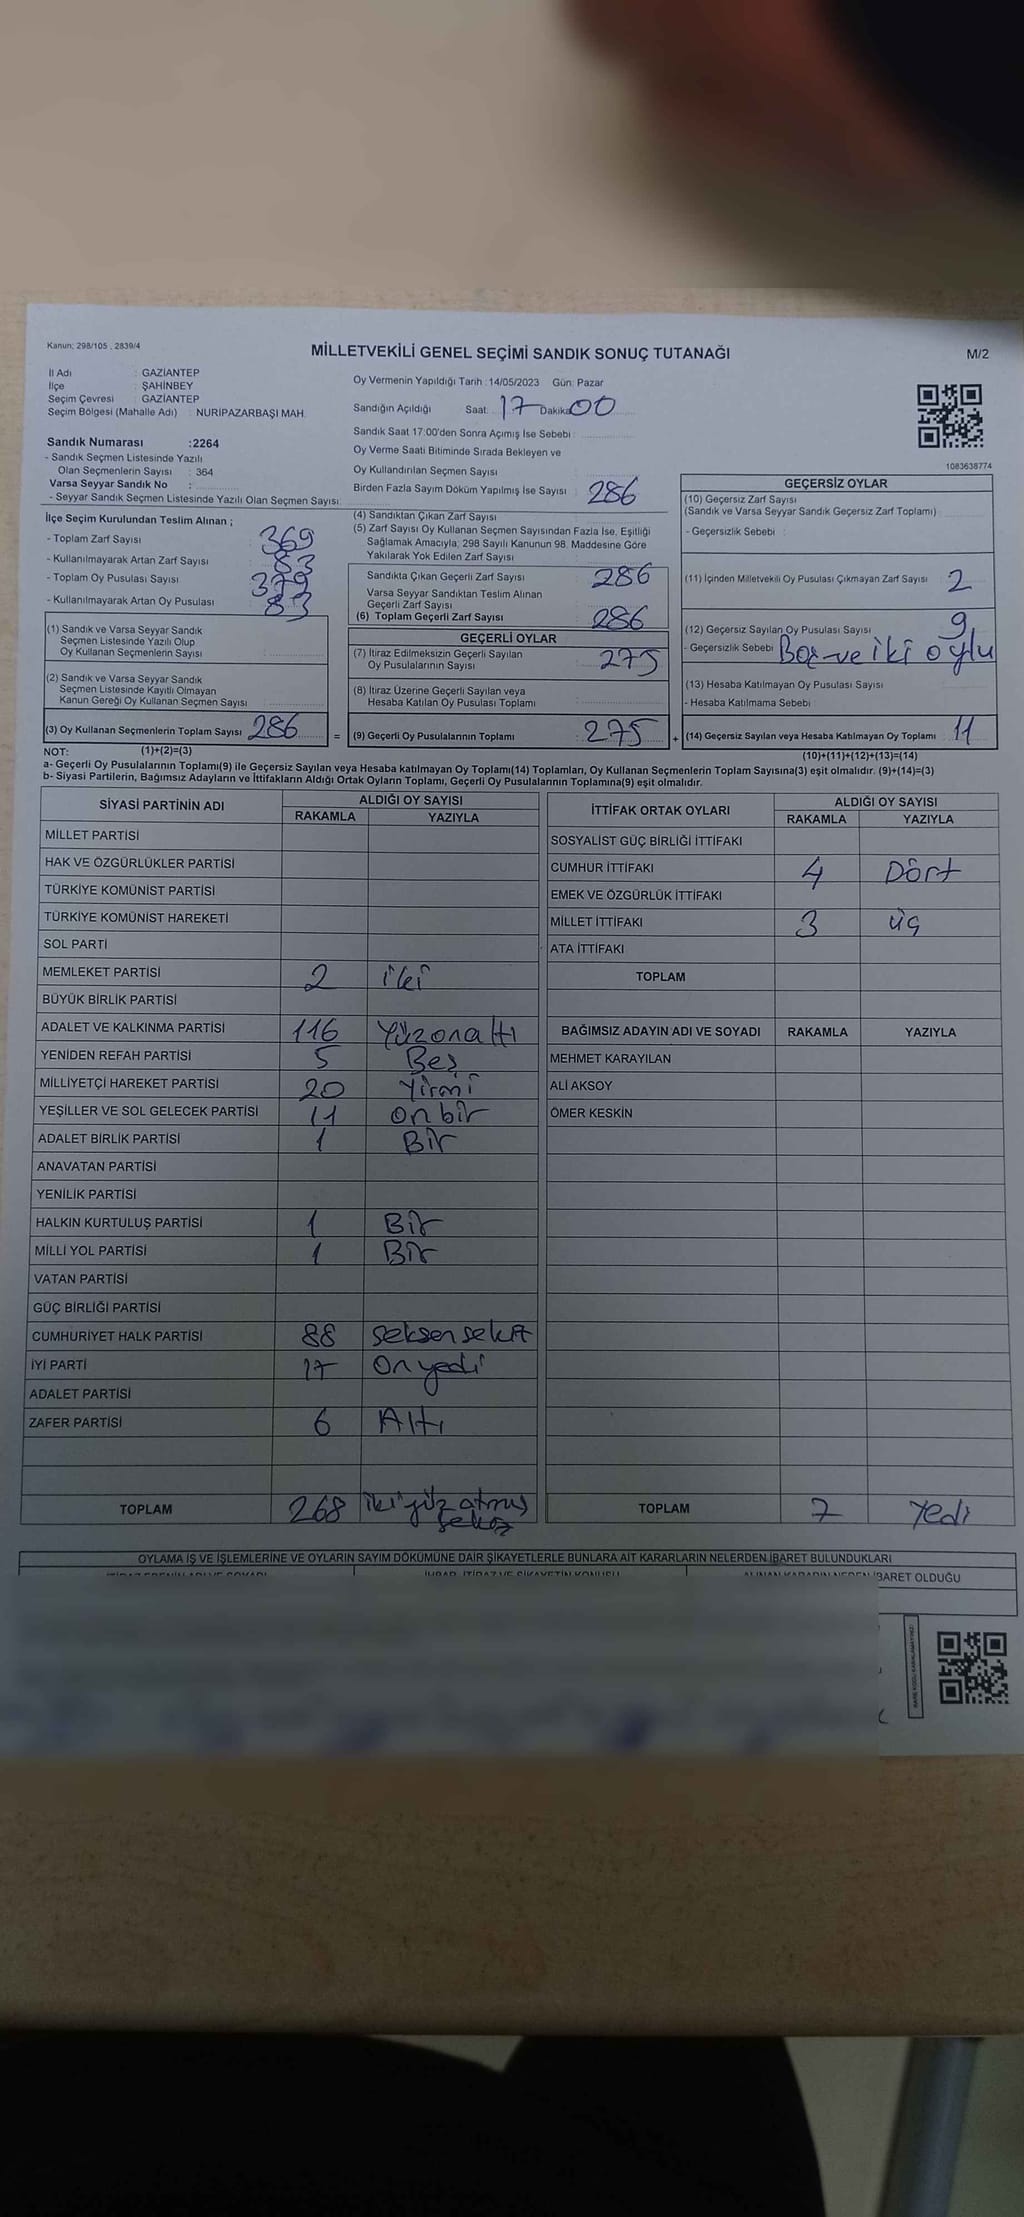 Kanun; 298/105 , 2839/4
MİLLETVEKİLİ GENEL SEÇİMİ SANDIK SONUÇ TUTANAĞI
M/2
İl Adı : GAZİANTEP
İlçe : ŞAHİNBEY
Seçim Çevresi : GAZİANTEP
Seçim Bölgesi (Mahalle Adı) : NURİPAZARBAŞI MAH.
Sandık Numarası :2264
- Sandık Seçmen Listesinde Yazılı
Olan Seçmenlerin Sayısı : 364
Varsa Seyyar Sandık No :
- Seyyar Sandık Seçmen Listesinde Yazılı Olan Seçmen Sayısı:
İlçe Seçim Kurulundan Teslim Alınan ;
- Toplam Zarf Sayısı 369
- Kullanılmayarak Artan Zarf Sayısı 83
- Toplam Oy Pusulası Sayısı 379
- Kullanılmayarak Artan Oy Pusulası 83
(1) Sandık ve Varsa Seyyar Sandık
Seçmen Listesinde Yazılı Olup
Oy Kullanan Seçmenlerin Sayısı
(2) Sandık ve Varsa Seyyar Sandık
Seçmen Listesinde Kayıtlı Olmayan
Kanun Gereği Oy Kullanan Seçmen Sayısı
(3) Oy Kullanan Seçmenlerin Toplam Sayısı 286
Oy Vermenin Yapıldığı Tarih : 14/05/2023 Gün: Pazar
Sandığın Açıldığı Saat: 17 Dakika: 00
Sandık Saat 17:00'den Sonra Açımış İse Sebebi :
Oy Verme Saati Bitiminde Sırada Bekleyen ve
Oy Kullandırılan Seçmen Sayısı
Birden Fazla Sayım Döküm Yapılmış İse Sayısı :
(4) Sandıktan Çıkan Zarf Sayısı 286
(5) Zarf Sayısı Oy Kullanan Seçmen Sayısından Fazla İse, Eşitliği
Sağlamak Amacıyla; 298 Sayılı Kanunun 98. Maddesine Göre
Yakılarak Yok Edilen Zarf Sayısı
Sandıkta Çıkan Geçerli Zarf Sayısı 286
Varsa Seyyar Sandıktan Teslim Alınan
Geçerli Zarf Sayısı
(6) Toplam Geçerli Zarf Sayısı 286
GEÇERLİ OYLAR
(7) İtiraz Edilmeksizin Geçerli Sayılan
Oy Pusulalarının Sayısı 275
(8) İtiraz Üzerine Geçerli Sayılan veya
Hesaba Katılan Oy Pusulası Toplamı
= (9) Geçerli Oy Pusulalarının Toplamı : 275 +
1083638774
GEÇERSİZ OYLAR
(10) Geçersiz Zarf Sayısı
(Sandık ve Varsa Seyyar Sandık Geçersiz Zarf Toplamı)
- Geçersizlik Sebebi :
(11) İçinden Milletvekili Oy Pusulası Çıkmayan Zarf Sayısı : 2
(12) Geçersiz Sayılan Oy Pusulası Sayısı 9
- Geçersizlik Sebebi Boş ve iki oylu
(13) Hesaba Katılmayan Oy Pusulası Sayısı
- Hesaba Katılmama Sebebi
(14) Geçersiz Sayılan veya Hesaba Katılmayan Oy Toplamı 11
NOT: (1)+(2)=(3)
(10)+(11)+(12)+(13)=(14)
a- Geçerli Oy Pusulalarının Toplamı(9) ile Geçersiz Sayılan veya Hesaba katılmayan Oy Toplamı(14) Toplamları, Oy Kullanan Seçmenlerin Toplam Sayısına(3) eşit olmalıdır. (9)+(14)=(3)
b- Siyasi Partilerin, Bağımsız Adayların ve İttifakların Aldığı Ortak Oyların Toplamı, Geçerli Oy Pusulalarının Toplamına(9) eşit olmalıdır.
SİYASİ PARTİNİN ADI
ALDIĞI OY SAYISI
RAKAMLA YAZIYLA
MİLLET PARTİSİ
HAK VE ÖZGÜRLÜKLER PARTİSİ
TÜRKİYE KOMÜNİST PARTİSİ
TÜRKİYE KOMÜNİST HAREKETİ
SOL PARTİ
MEMLEKET PARTİSİ 2 iki
BÜYÜK BİRLİK PARTİSİ
ADALET VE KALKINMA PARTİSİ 116 Yüzonaltı
YENİDEN REFAH PARTİSİ 5 Beş
MİLLİYETÇİ HAREKET PARTİSİ 20 Yirmi
YEŞİLLER VE SOL GELECEK PARTİSİ 11 on bir
ADALET BİRLİK PARTİSİ 1 Bir
ANAVATAN PARTİSİ
YENİLİK PARTİSİ
HALKIN KURTULUŞ PARTİSİ 1 Bir
MİLLİ YOL PARTİSİ 1 Bir
VATAN PARTİSİ
GÜÇ BİRLİĞİ PARTİSİ
CUMHURİYET HALK PARTİSİ 88 seksen sekiz
İYİ PARTİ 17 On yedi
ADALET PARTİSİ
ZAFER PARTİSİ 6 Altı
TOPLAM 268 iki yüz atmış
sekiz
İTTİFAK ORTAK OYLARI
ALDIĞI OY SAYISI
RAKAMLA YAZIYLA
SOSYALİST GÜÇ BİRLİĞİ İTTİFAKI
CUMHUR İTTİFAKI 4 Dört
EMEK VE ÖZGÜRLÜK İTTİFAKI
MİLLET İTTİFAKI 3 üç
ATA İTTİFAKI
TOPLAM
BAĞIMSIZ ADAYIN ADI VE SOYADI RAKAMLA YAZIYLA
MEHMET KARAYILAN
ALİ AKSOY
ÖMER KESKİN
TOPLAM 7 Yedi
OYLAMA İŞ VE İŞLEMLERİNE VE OYLARIN SAYIM DÖKÜMÜNE DAİR ŞİKAYETLERLE BUNLARA AİT KARARLARIN NELERDEN İBARET BULUNDUKLARI
İHBAR, İTİRAZ VE ŞİKAYETİN KONUSU
ALINAN KARARIN NEDEN İBARET OLDUĞU